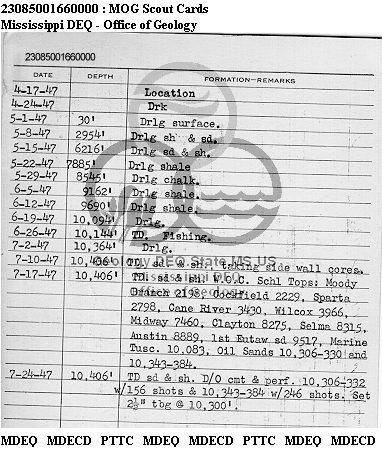 23085001660000 : MOG Scout Cards
Mississippi DEQ - Office of Geology
23085001660000
DATE DEPTH FORMATION—REMARKS
4-17-47 Location
4-24-47 Drk
5-1-47 30' Drlg surface.
5-8-47 2954' Drlg sh & sd.
5-15-47 6216' Drlg sd & sh.
5-22-47 7885' Drlg shale
5-29-47 8545' Drlg chalk.
6-5-47 9162' Drlg shale.
6-12-47 9690' Drlg shale.
6-19-47 10,094' Drlg.
6-26-47 10,144' TD. Fishing.
7-2-47 10,364' Drlg.
7-10-47 10,406' TD. sd & sh. taking side wall cores.
7-17-47 10,406' TD. sd & sh. W.O.C. Schl Tops: Moody
Branch 2198, Cockfield 2229, Sparta
2798, Cane River 3430, Wilcox 3966,
Midway 7460, Clayton 8275, Selma 8315,
Austin 8889, 1st Eutaw sd 9517, Marine
Tusc. 10,083, Oil Sands 10,306-330 and
10,343-384.
7-24-47 10,406' TD sd & sh. D/O cmt & perf. 10,306-332
w/156 shots & 10,343-384 w/246 shots. Set
2½" tbg @ 10,300'.
MDEQ MDECD PTTC MDEQ MDECD PTTC MDEQ MDECD